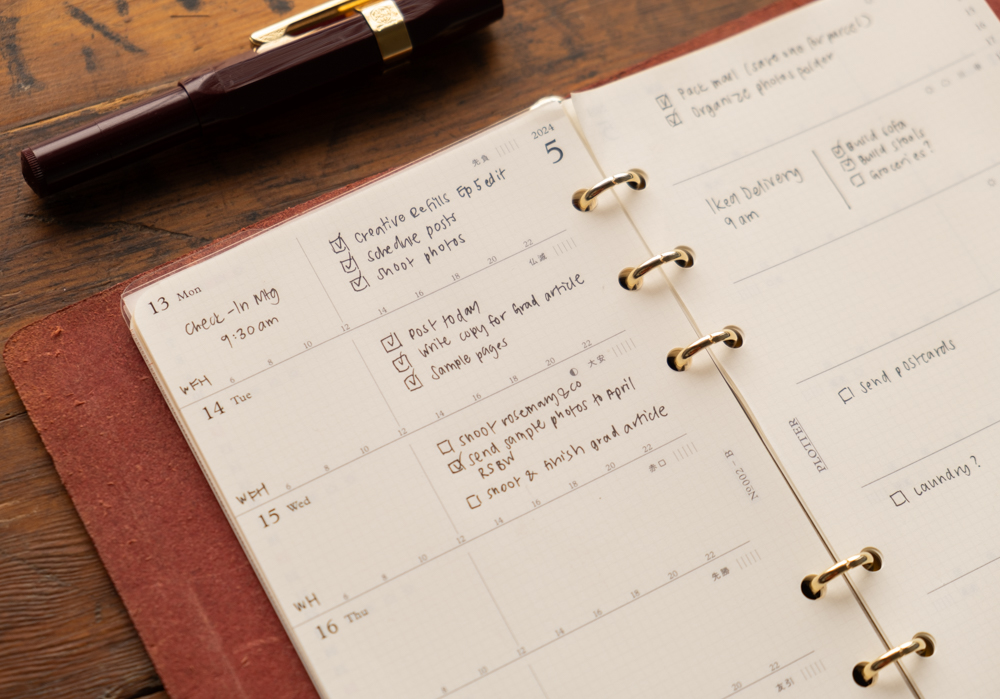 2024
5
先負
13 Mon
Check-In Mtg
9:30 am
WFH
☑ Creative Refills Ep 5 edit
☑ schedule posts
☑ shoot photos
6 8 10 12 14 16 18 20 22
仏滅
14 Tue
WFH
☑ post today
☑ write copy for grad article
☑ sample pages
6 8 10 12 14 16 18 20 22
大安
15 Wed
WH
☐ shoot rosemary & co
☑ send sample photos to April
RSBW
☐ shoot & finish grad article
6 8 10 12 14 16 18 20 22
赤口
16 Thu
8 10 12 14 16 18 20 22
先勝
20 22
友引
☑ Pack mail (save one for parcel)
☑ Organize photos folder
Ikea Delivery
9 am
☑ Build sofa
☑ Build stools
☐ Groceries?
☐ send postcards
☐ laundry?
PLOTTER